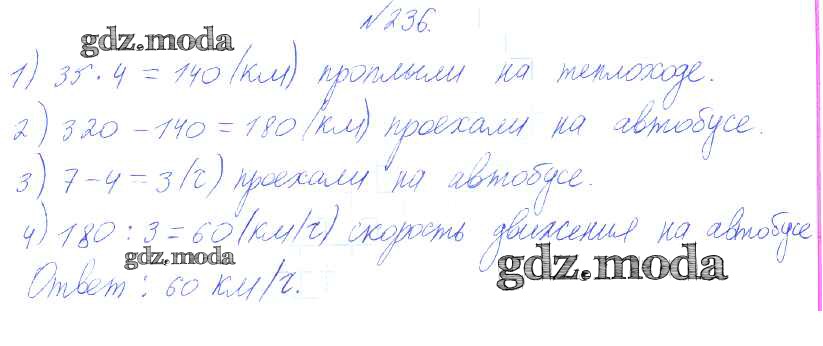 №236.
gdz.moda
1) 35·4 = 140 (км) проплыли на теплоходе.
2) 320 - 140 = 180 (км) проехали на автобусе.
3) 7 - 4 = 3 (ч) проехали на автобусе.
4) 180 : 3 = 60 (км/ч) скорость движения на автобусе.
gdz.moda
gdz.moda
Ответ: 60 км/ч.